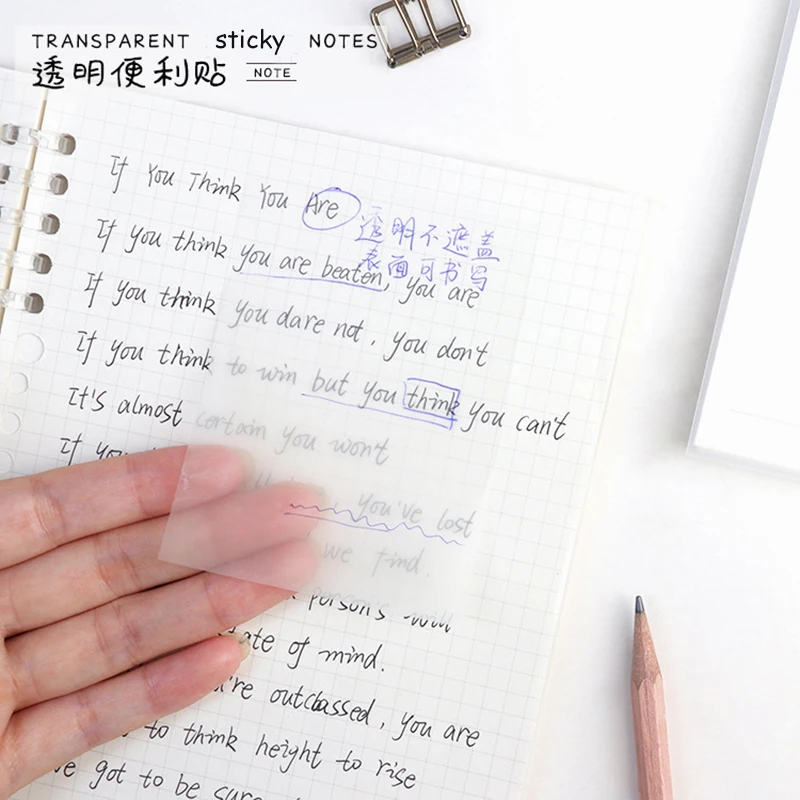 TRANSPARENT sticky NOTES
透明便利贴 NOTE
If You Think You Are
透明不遮盖
表面可书写
If you think you are beaten, you are
If you think you dare not, you don't
If you think to win but you think you can't
It's almost certain you won't
If
you've lost
we find.
person's will
state of mind.
outclassed, you are
to think height to rise
got to be sure